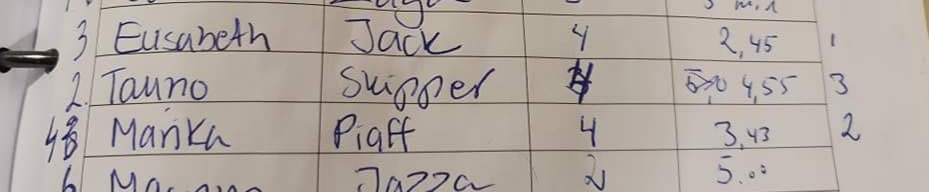 3 min
3 Eusabeth Jack 4 2,45 1
2. Tauno Skipper 4 4,55 3
Marika Piaff 4 3,43 2
6 Jazza 2 5.00